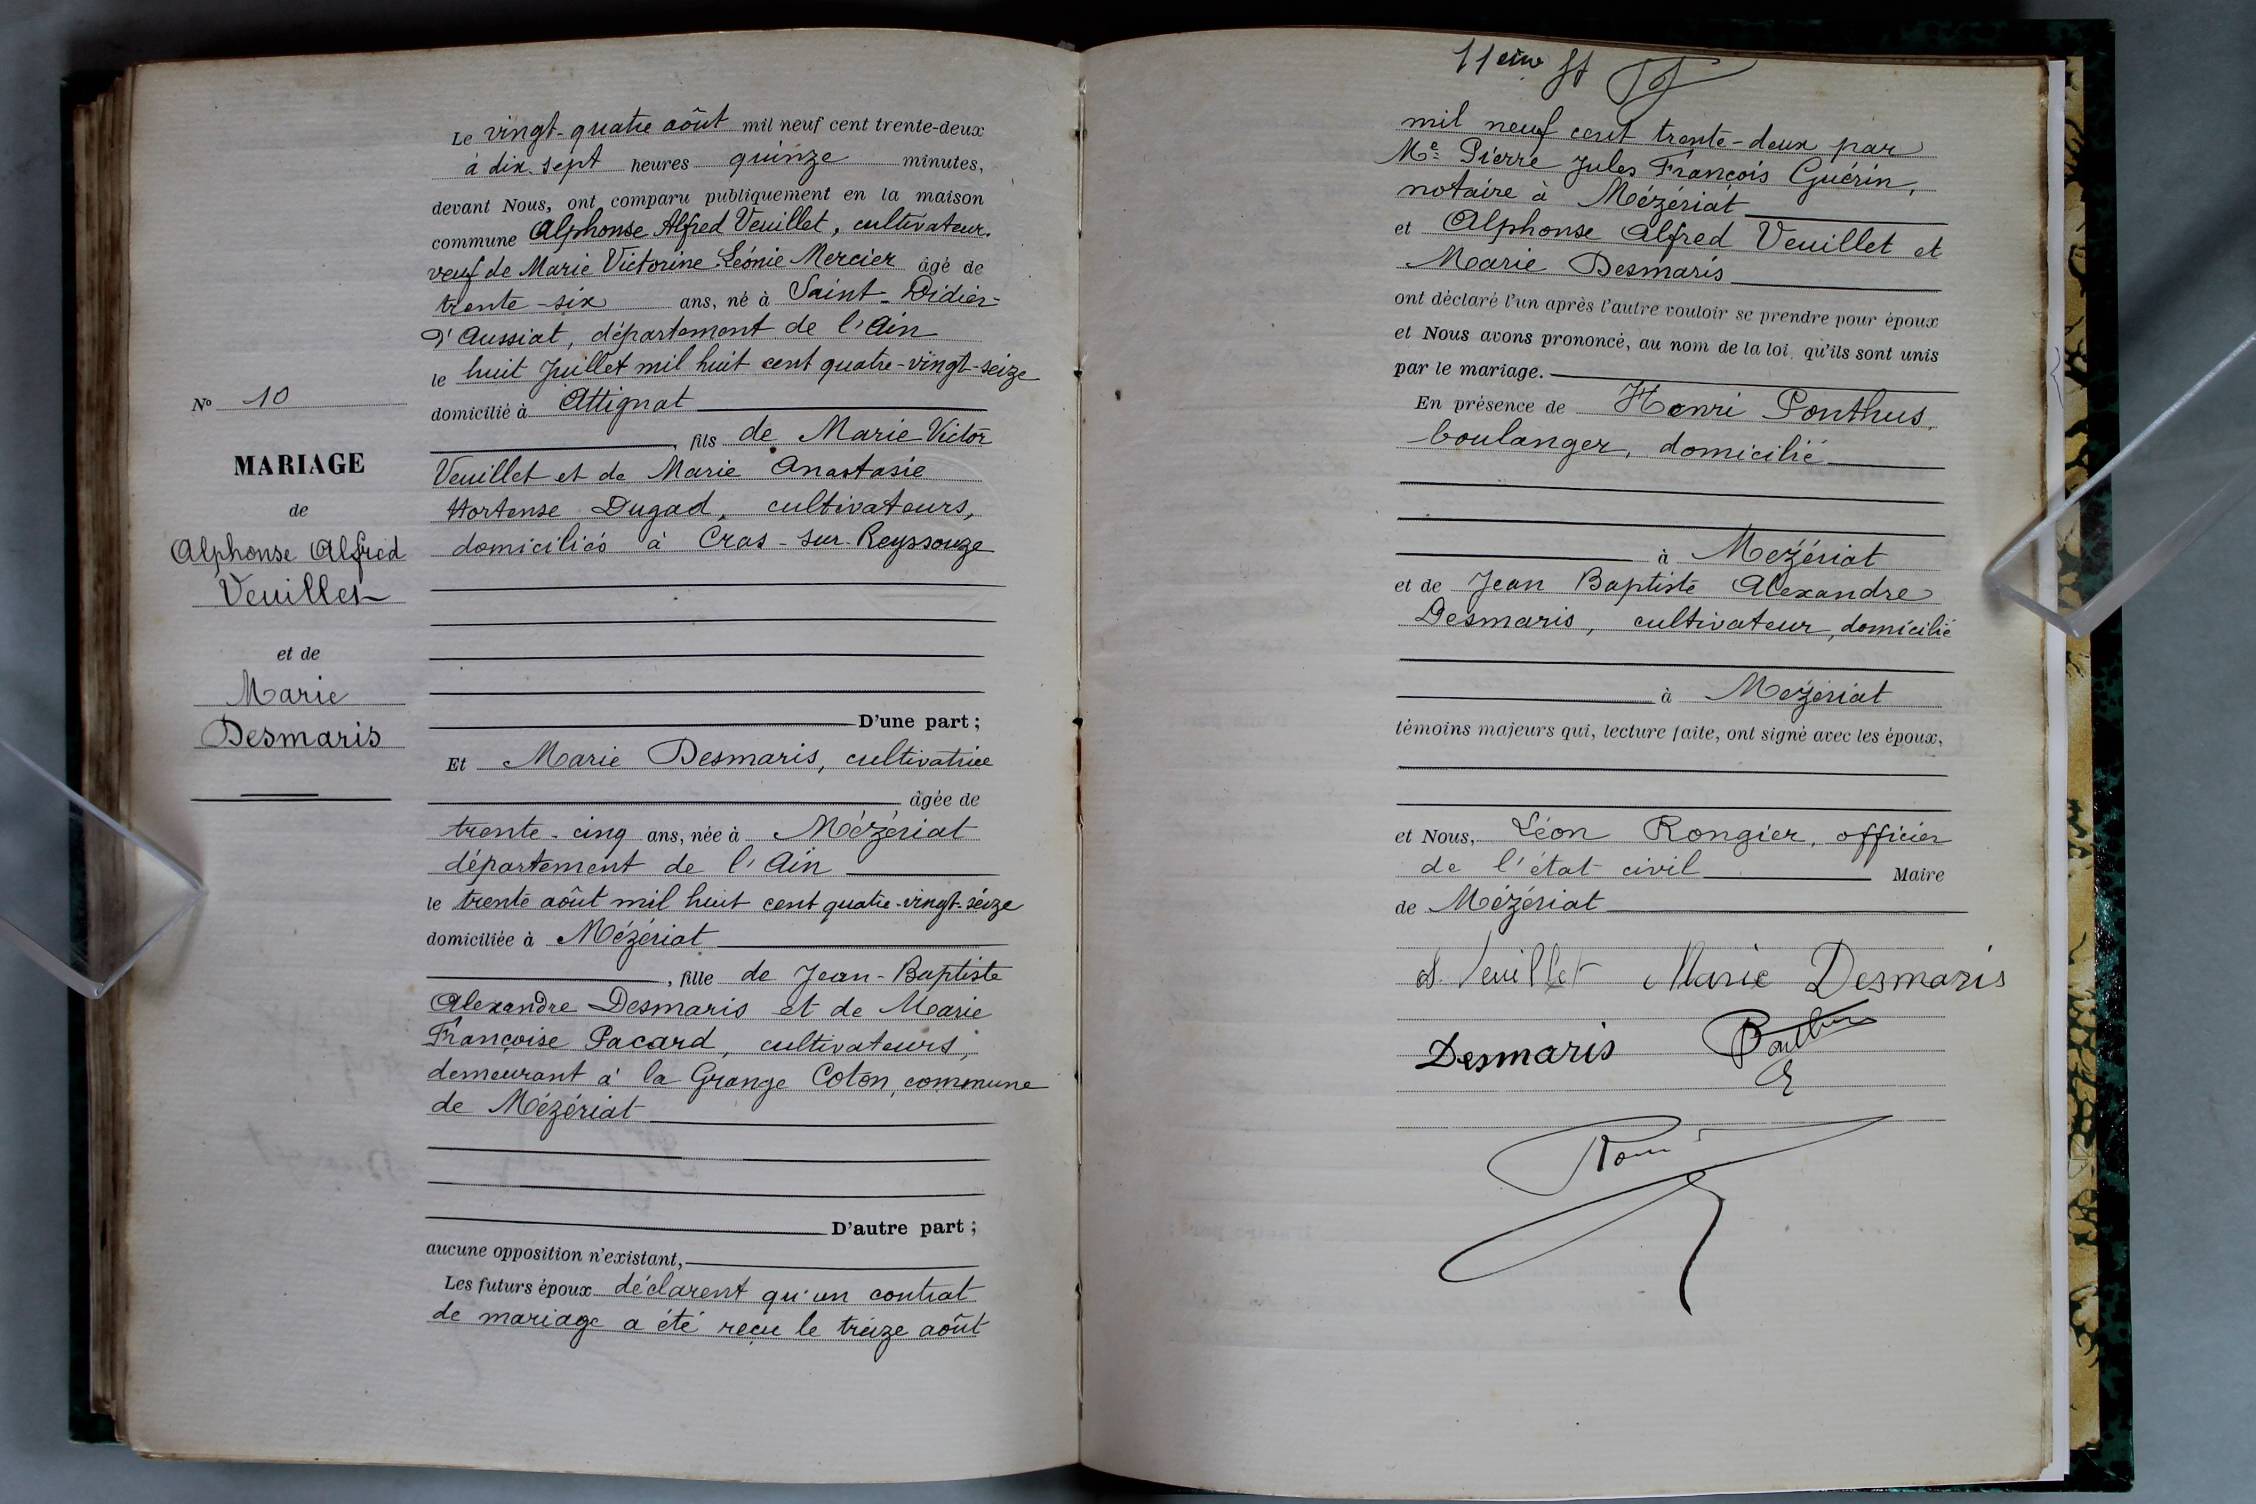 Le vingt-quatre août mil neuf cent trente-deux
à dix-sept heures quinze minutes,
devant Nous, ont comparu publiquement en la maison
commune Alphonse Alfred Veuillet, cultivateur.
veuf de Marie Victorine Léonie Mercier âgé de
trente-six ans, né à Saint-Didier-
d'Aussiat, département de l'Ain
le huit Juillet mil huit cent quatre-vingt-seize
domicilié à Attignat
, fils de Marie Victor
Veuillet et de Marie Anastasie
Hortense Dugad, cultivateurs,
domiciliés à Cras-sur-Reyssouze
D'une part ;
Et Marie Desmaris, cultivatrice
âgée de
trente-cinq ans, née à Mézériat
département de l'Ain
le trente août mil huit cent quatre-vingt-seize
domiciliée à Mézériat
, fille de Jean-Baptiste
Alexandre Desmaris et de Marie
Françoise Pacard, cultivateurs,
demeurant à la Grange Coton, commune
de Mézériat
D'autre part ;
aucune opposition n'existant,
Les futurs époux déclarent qu'un contrat
de mariage a été reçu le treize août
N° 10
MARIAGE
de
Alphonse Alfred
Veuillet
et de
Marie
Desmaris
mil neuf cent trente-deux par
Me Pierre Jules François Guérin,
notaire à Mézériat
et Alphonse Alfred Veuillet et
Marie Desmaris
ont déclaré l'un après l'autre vouloir se prendre pour époux
et Nous avons prononcé, au nom de la loi, qu'ils sont unis
par le mariage.
En présence de Henri Ponthus,
boulanger, domicilié
à Mézériat
et de Jean Baptiste Alexandre
Desmaris, cultivateur, domicilié
à Mézériat
témoins majeurs qui, lecture faite, ont signé avec les époux,
et Nous, Léon Rongier, officier
de l'état civil Maire
de Mézériat
A Veuillet Marie Desmaris
Desmaris